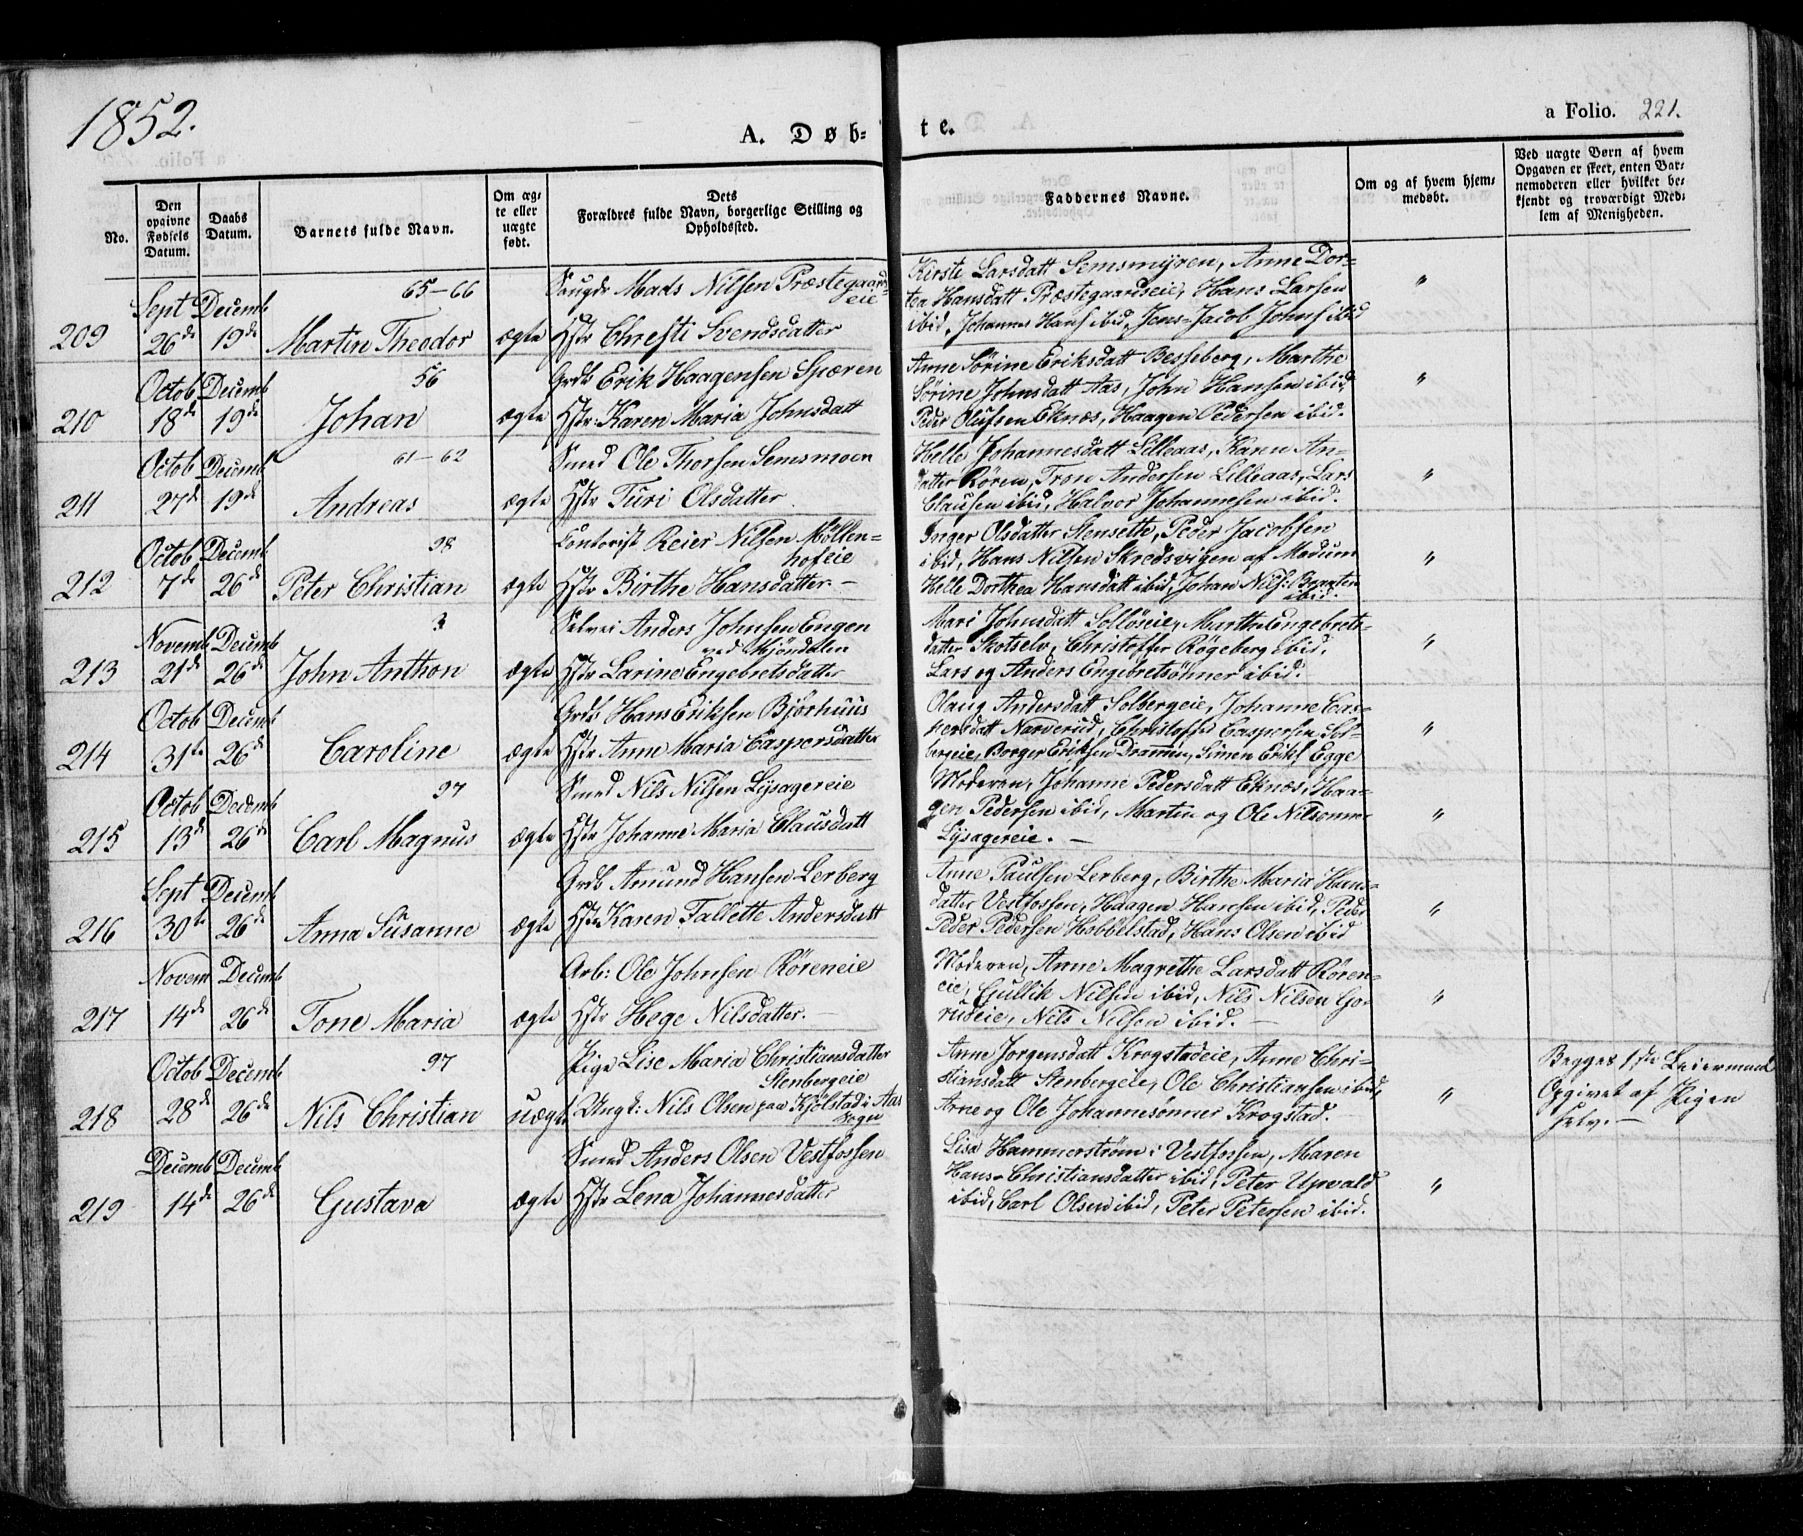 1852.
A. Døb-
te.
a Folio. 221.
No.
Den
opgivne
Fødsels
Datum.
Daabs
Datum.
Barnets fulde Navn.
Om æg-
te eller
uægte
født.
Dets
Forældres fulde Navn, borgerlige Stilling og
Opholdssted.
Faddernes Navne.
Om og af hvem hjem-
medøbt.
Ved uægte Børn af hvem
Opgaven er skeet, enten Bar-
nemoderen eller hvilket be-
kjendt og troværdigt Med-
lem af Menigheden.
209
Sept
26de
Decemb
19de
65-66
Martin Theodor
ægte
Mads Nilsen Præstegaards-
eie
Hstr Christi Svendsdatter
Kirste Larsdatt Semsmyren, Anne Dor-
tea Hansdatt Præstegaardseie, Hans Larsen
ibid, Johannes Hans ibid, Jens Jacob Johns ibid
"
210
Octob
18de
Decemb
19de
56
Johan
ægte
Grdb Erik Haagensen Spæren
Hstr: Karen Maria Johnsdatt
Anne Sørine Eriksdatt Besseberg, Marthe
Sørine Johnsdatt Aas, John Hansen ibid,
Peder Olufsen Eknæs, Haagen Pedersen ibid.
"
211
Octob
27de
Decemb
19de
61-62
Andreas
ægte
Smed Ole Thorsen Semsmoen
Hstr Turi Olsdatter
Helle Johannesdatt Lilleaas, Karen An-
datter Røren, Tron Andersen Lilleaas, Lars
Clausen ibid, Halvor Johannesen ibid.
"
212
Octob
7de
Decemb
26de
98
Peter Christian
ægte
Contorist Reier Nilsen Möllen-
hofeie
Hstr Birthe Hansdatter. -
Inger Olsdatter Stensette, Peder Jacobsen
ibid, Hans Nilsen Skredsvigen af Modum
Helle Dorthea Hansdatt ibid, Johan Nils: Braaten
ibid.
"
213
Novemb
21de
Decemb
26de
3
John Anthon
ægte
Selvei Anders Johnsen Engen
ved Mjöndalen
Hstr Larine Engebretsdatter
Mari Johnsdatt Sollöseie, Marthe Engebrets-
datter Skotselv, Christoffer Rögeberg ibid.
Lars og Anders Engebretsönner ibid.
"
214
Octob
31te
Decemb
26de
Caroline
ægte
Grdb Hans Eriksen Björhuus
Hstr Anne Maria Caspersdatter
Olaug Andersdatt Solbergeie, Johanne Cas-
persdatt Narverud, Christoffer Caspersen Sol-
bergeie, Borger Eriksen Drammen, Simen Eriks Egge
"
215
Octob
13de
Decemb
26de
97
Carl Magnus
ægte
Smed Nils Nilsen Lysagereie
Hstr Johanne Maria Clausdatt
Moderen, Johanne Pedersdatt Eknæs, Haa-
gen Pedersen ibid, Martin og Ole Nilsönner
Lysagereie. -
"
216
Sept
30te
Decemb
26de
Anna Susanne
ægte
Grdb Amund Hansen Lerberg
Hstr Karen Tallette Andersdatt
Anne Paulsen Lerberg, Birthe Maria Hans-
datter Vestfossen, Haagen Hansen ibid, Peder
Peder Pedersen Hobbelstad, Hans Olsen ibid
"
217
Novem
14de
Decemb
26de
Tone Maria
ægte
Arb: Ole Johnsen Röreneie
Hstr Hege Nilsdatter. -
Moderen, Anne Magrethe Larsdatt Rören-
eie, Gullik Nilsen ibid, Nils Nilsen Go-
rudeie, Nils Nilsen ibid. -
"
218
Octob
28de
Decemb
26de
97
Nils Christian
uægte
Pige Lise Maria Christiansdatter
Stenbergeie
Ungk: Nils Olsen paa Kjölstad i Aas
Sogn
Anne Jorgensdatt Krogstadeie, Anne Chri-
stiansdatt Stenbergeie, Ole Christiansen ibid,
Arne og Ole Johannesönner Krogstad.
"
Begges 1ste Leiermaal
Opgivet af Pigen
selv. -
219
Decemb
14de
Decemb
26de
Gustava
ægte
Smed Anders Olsen Vestfossen
Hstr Lena Johannesdatter
Lisa Hammerström i Vestfossen, Maren
Hans-Christiansdatter ibid, Peter Upvald
ibid, Carl Olsen ibid, Peter Petersen ibid.
"